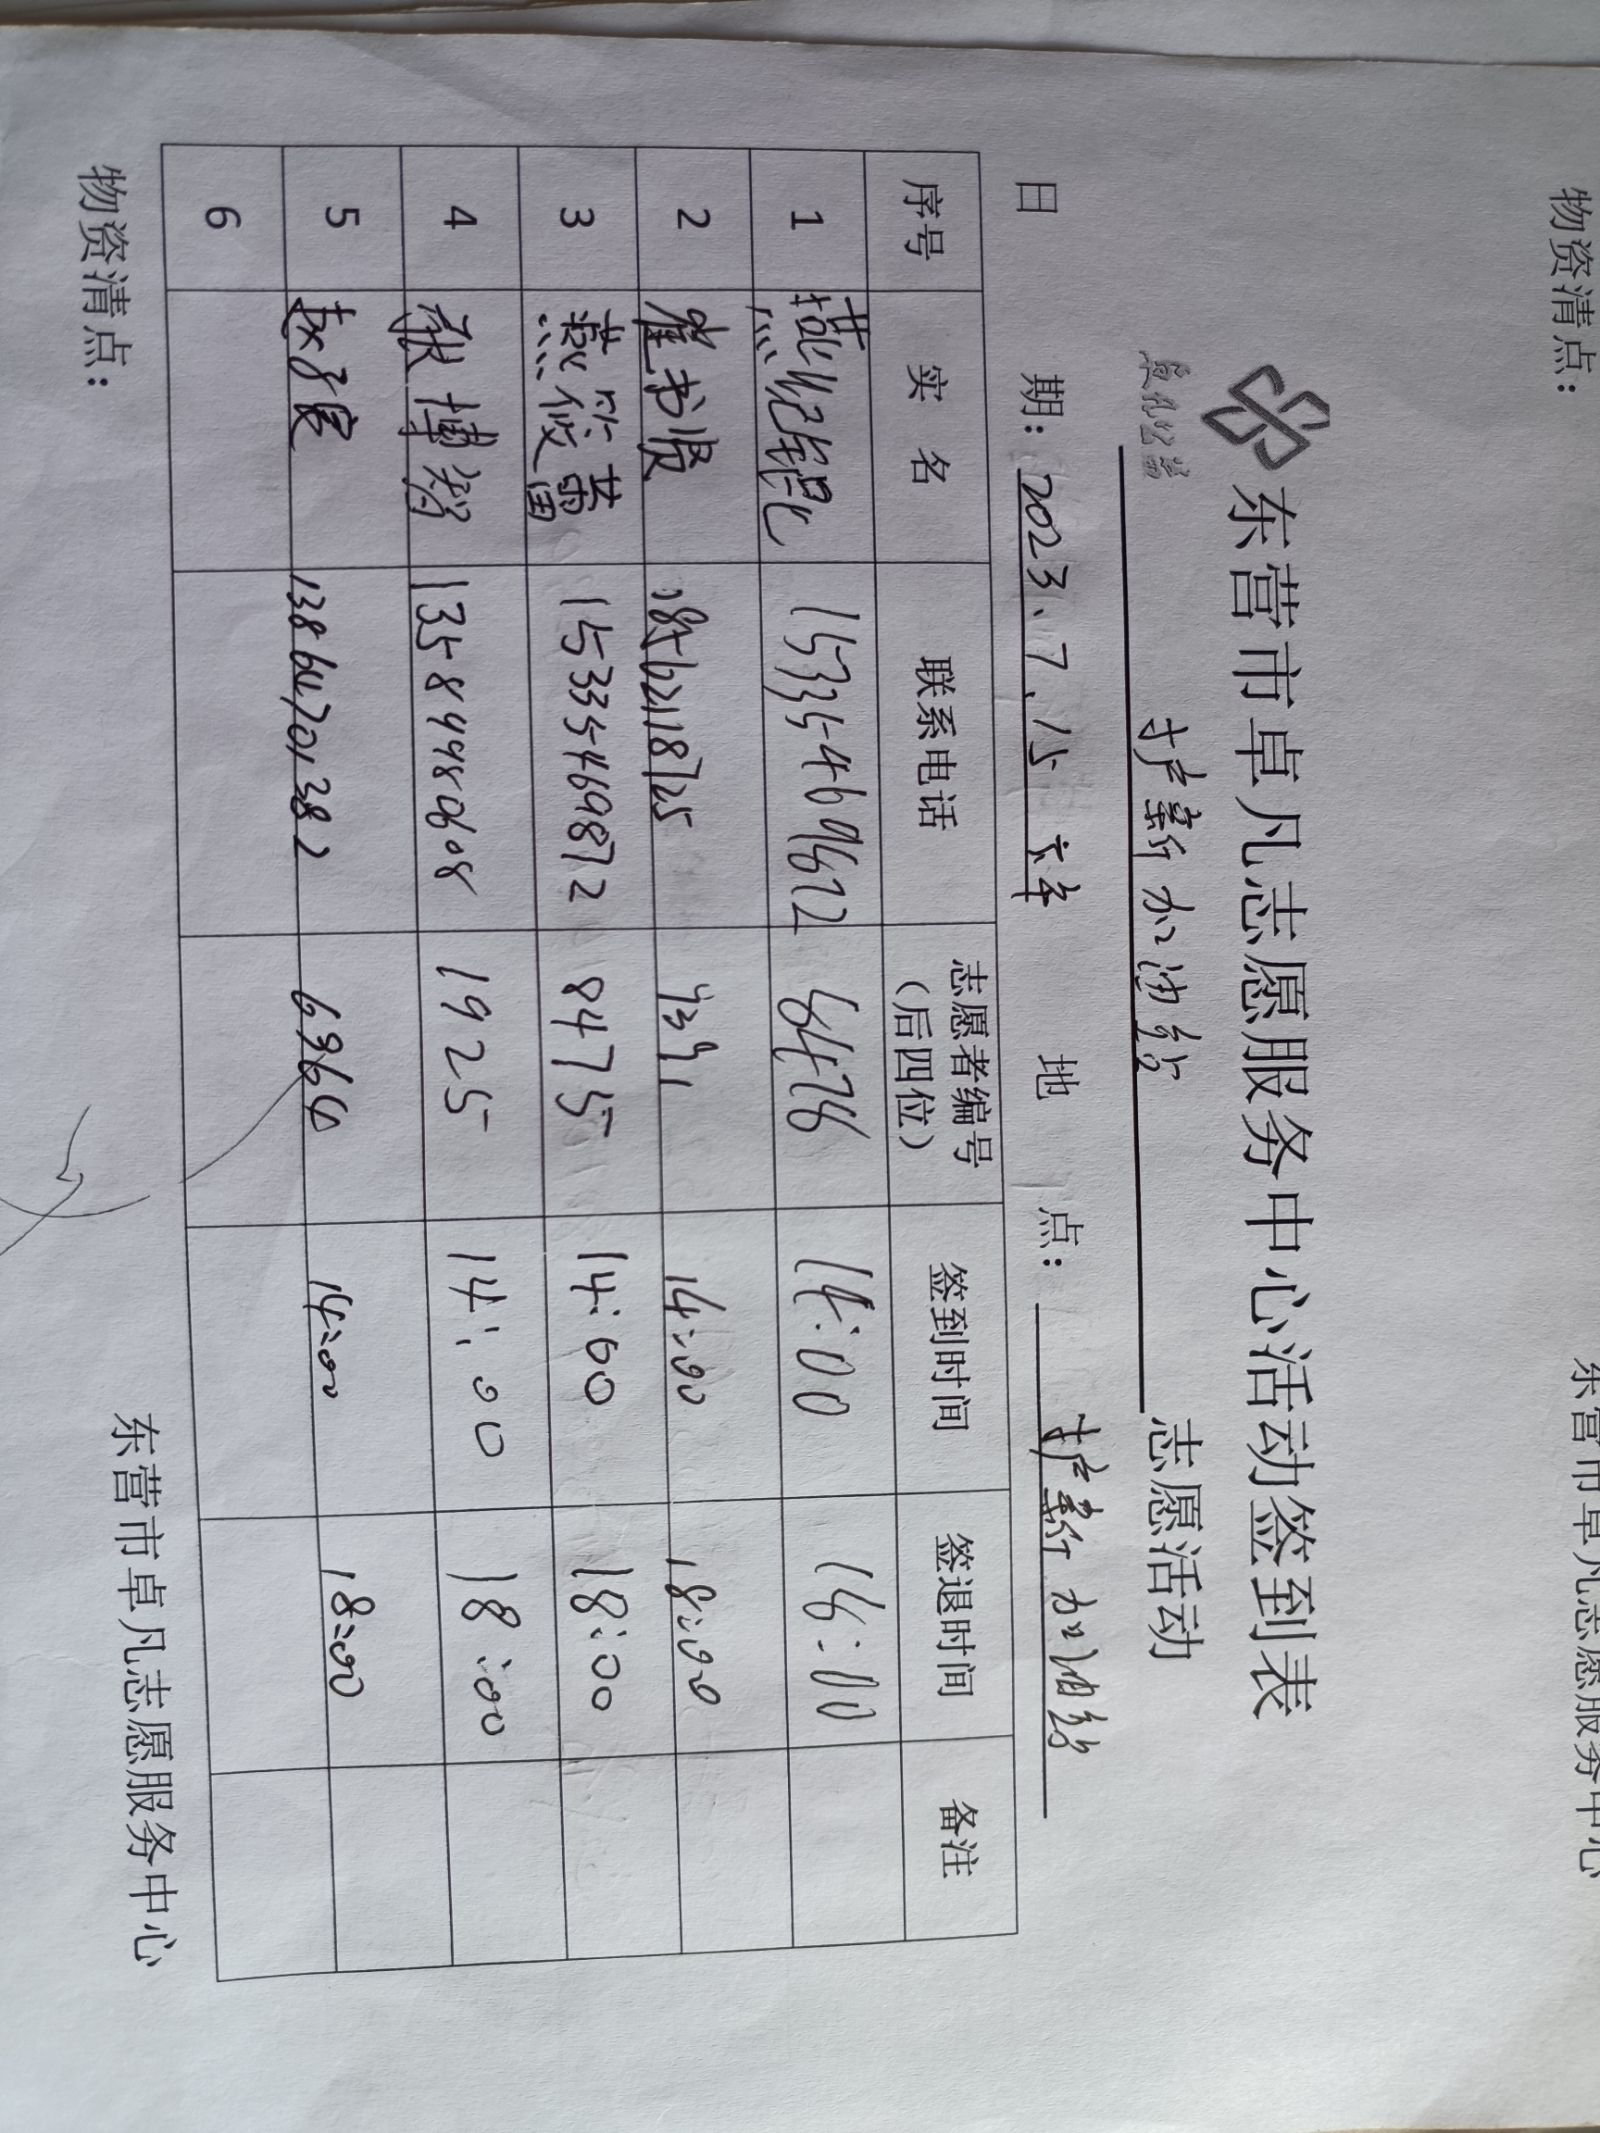 东营市卓凡志愿服务中心活动签到表
卓凡公益
护薪加油站 志愿活动
日 期：2023.7.15 地 点：护薪加油站
序号 实 名 联系电话 志愿者编号（后四位） 签到时间 签退时间 备注
1 燕 14:00 18:00
2 崔书贤 18562118725 14:00 18:00
3 燕筱菡 15335469872 8475 14:00 18:00
4 张博智 13589980608 1925 14:00 18:00
5 赵子宸 13864701382 6964 14:00 18:00
6
物资清点：
东营市卓凡志愿服务中心
物资清点：
东营市卓凡志愿服务中心